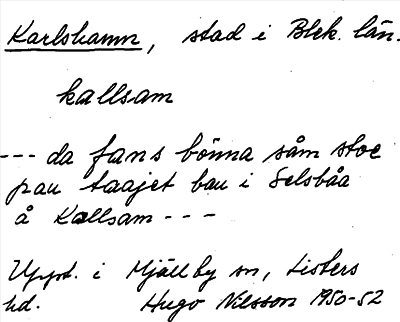 Karlshamn, stad i Blek. län.
kallsam
--- da fans bönna såm stoe
pau taajet bau i Selsbåa
å Kallsam ---
Uppt. i Mjällby sn, Listers
hd. Hugo Nilsson 1950-52